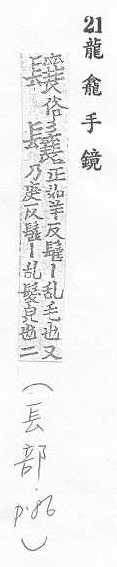 21 龍龕手鏡
俗 正 如羊反丨乱毛也又
乃庚反丨乱髮皃也二
(長部 p.86)